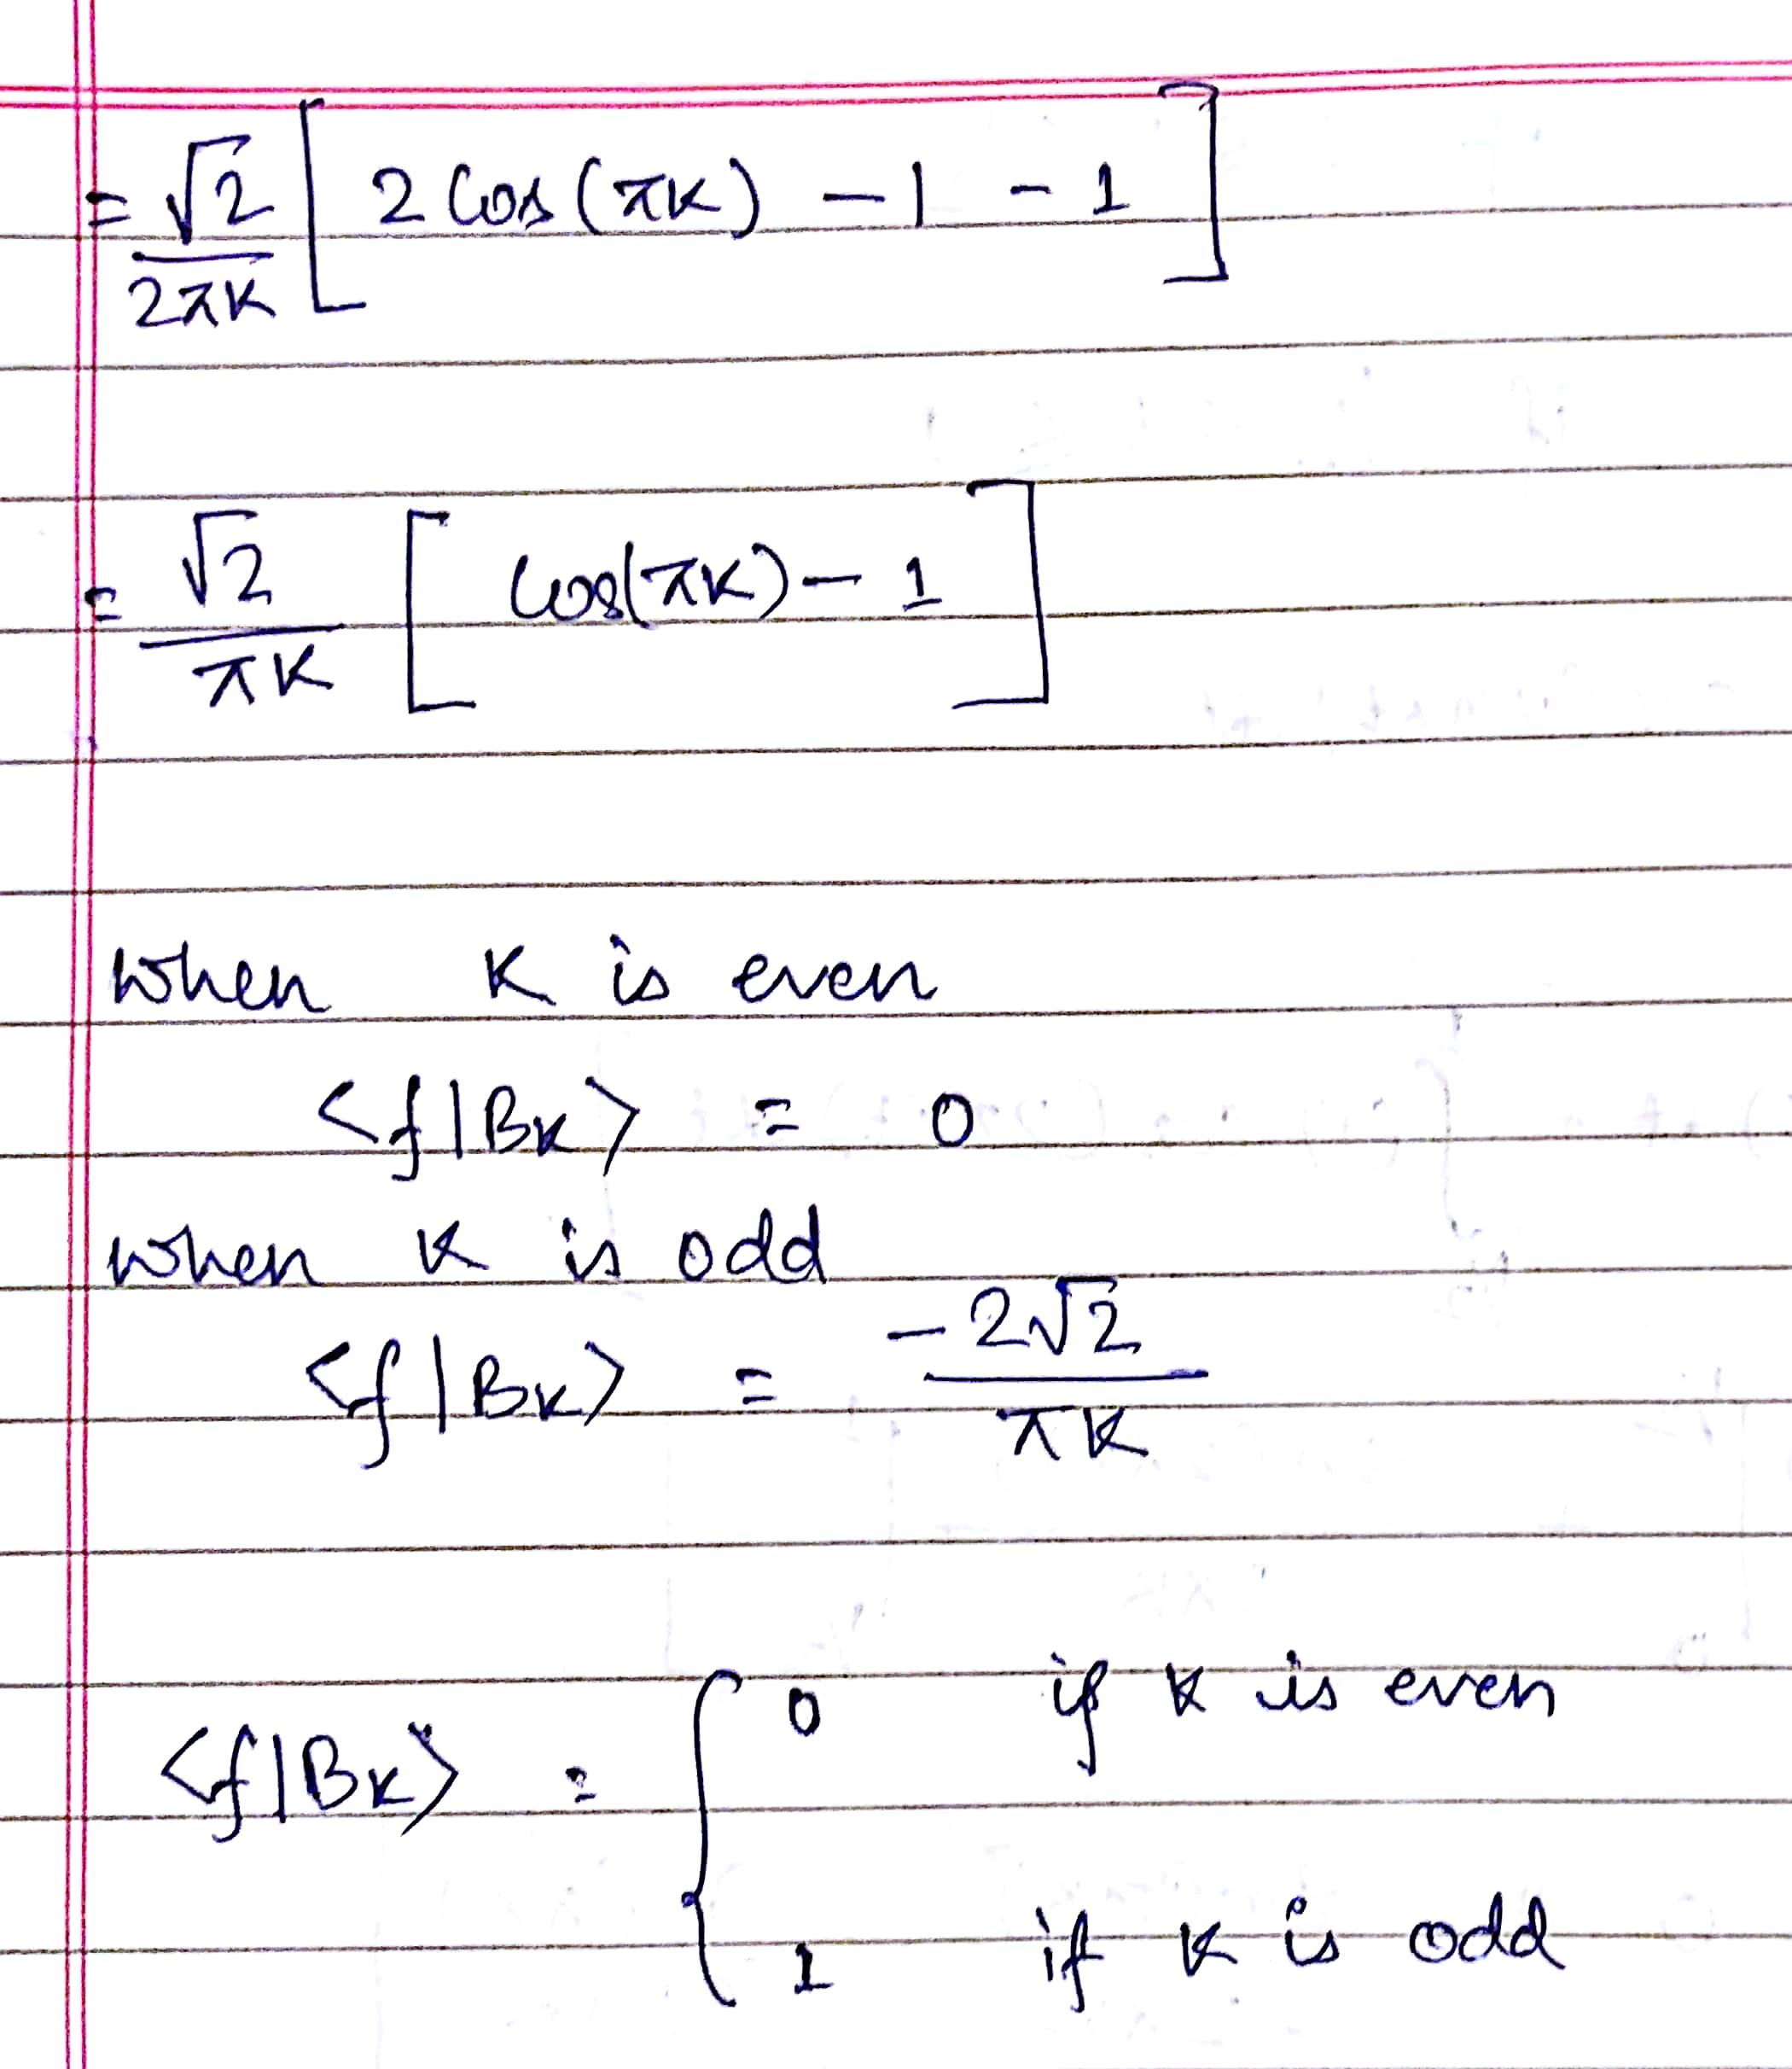 = √2/2πK [ 2 Cos (πK) - 1 - 1 ]
= √2/πK [ Cos(πK) - 1 ]
when K is even
<f|BK> = 0
when K is odd
<f|BK> = -2√2/πK
<f|BK> = { 0 if K is even
1 if K is odd